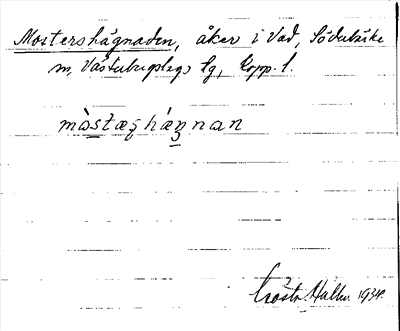 Mostershägnaden, åker i Vad, Söderbärke
sn, Västerbergslags lg, Kopp. l.
mòstæşhágnan
Gösta Hallm 1934.